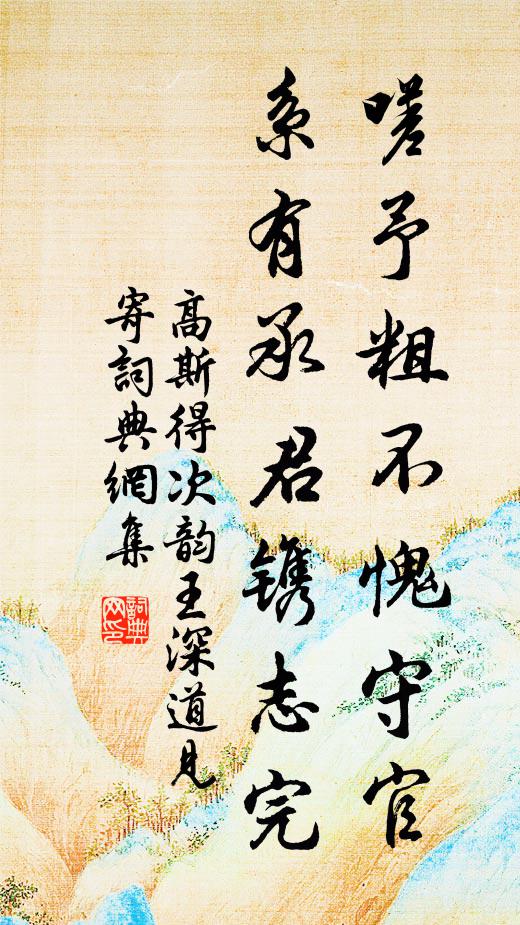 嗟予粗不愧守官
系有承君镌志完
高斯得次韵王深道見
寄詞典網集
詞典网印